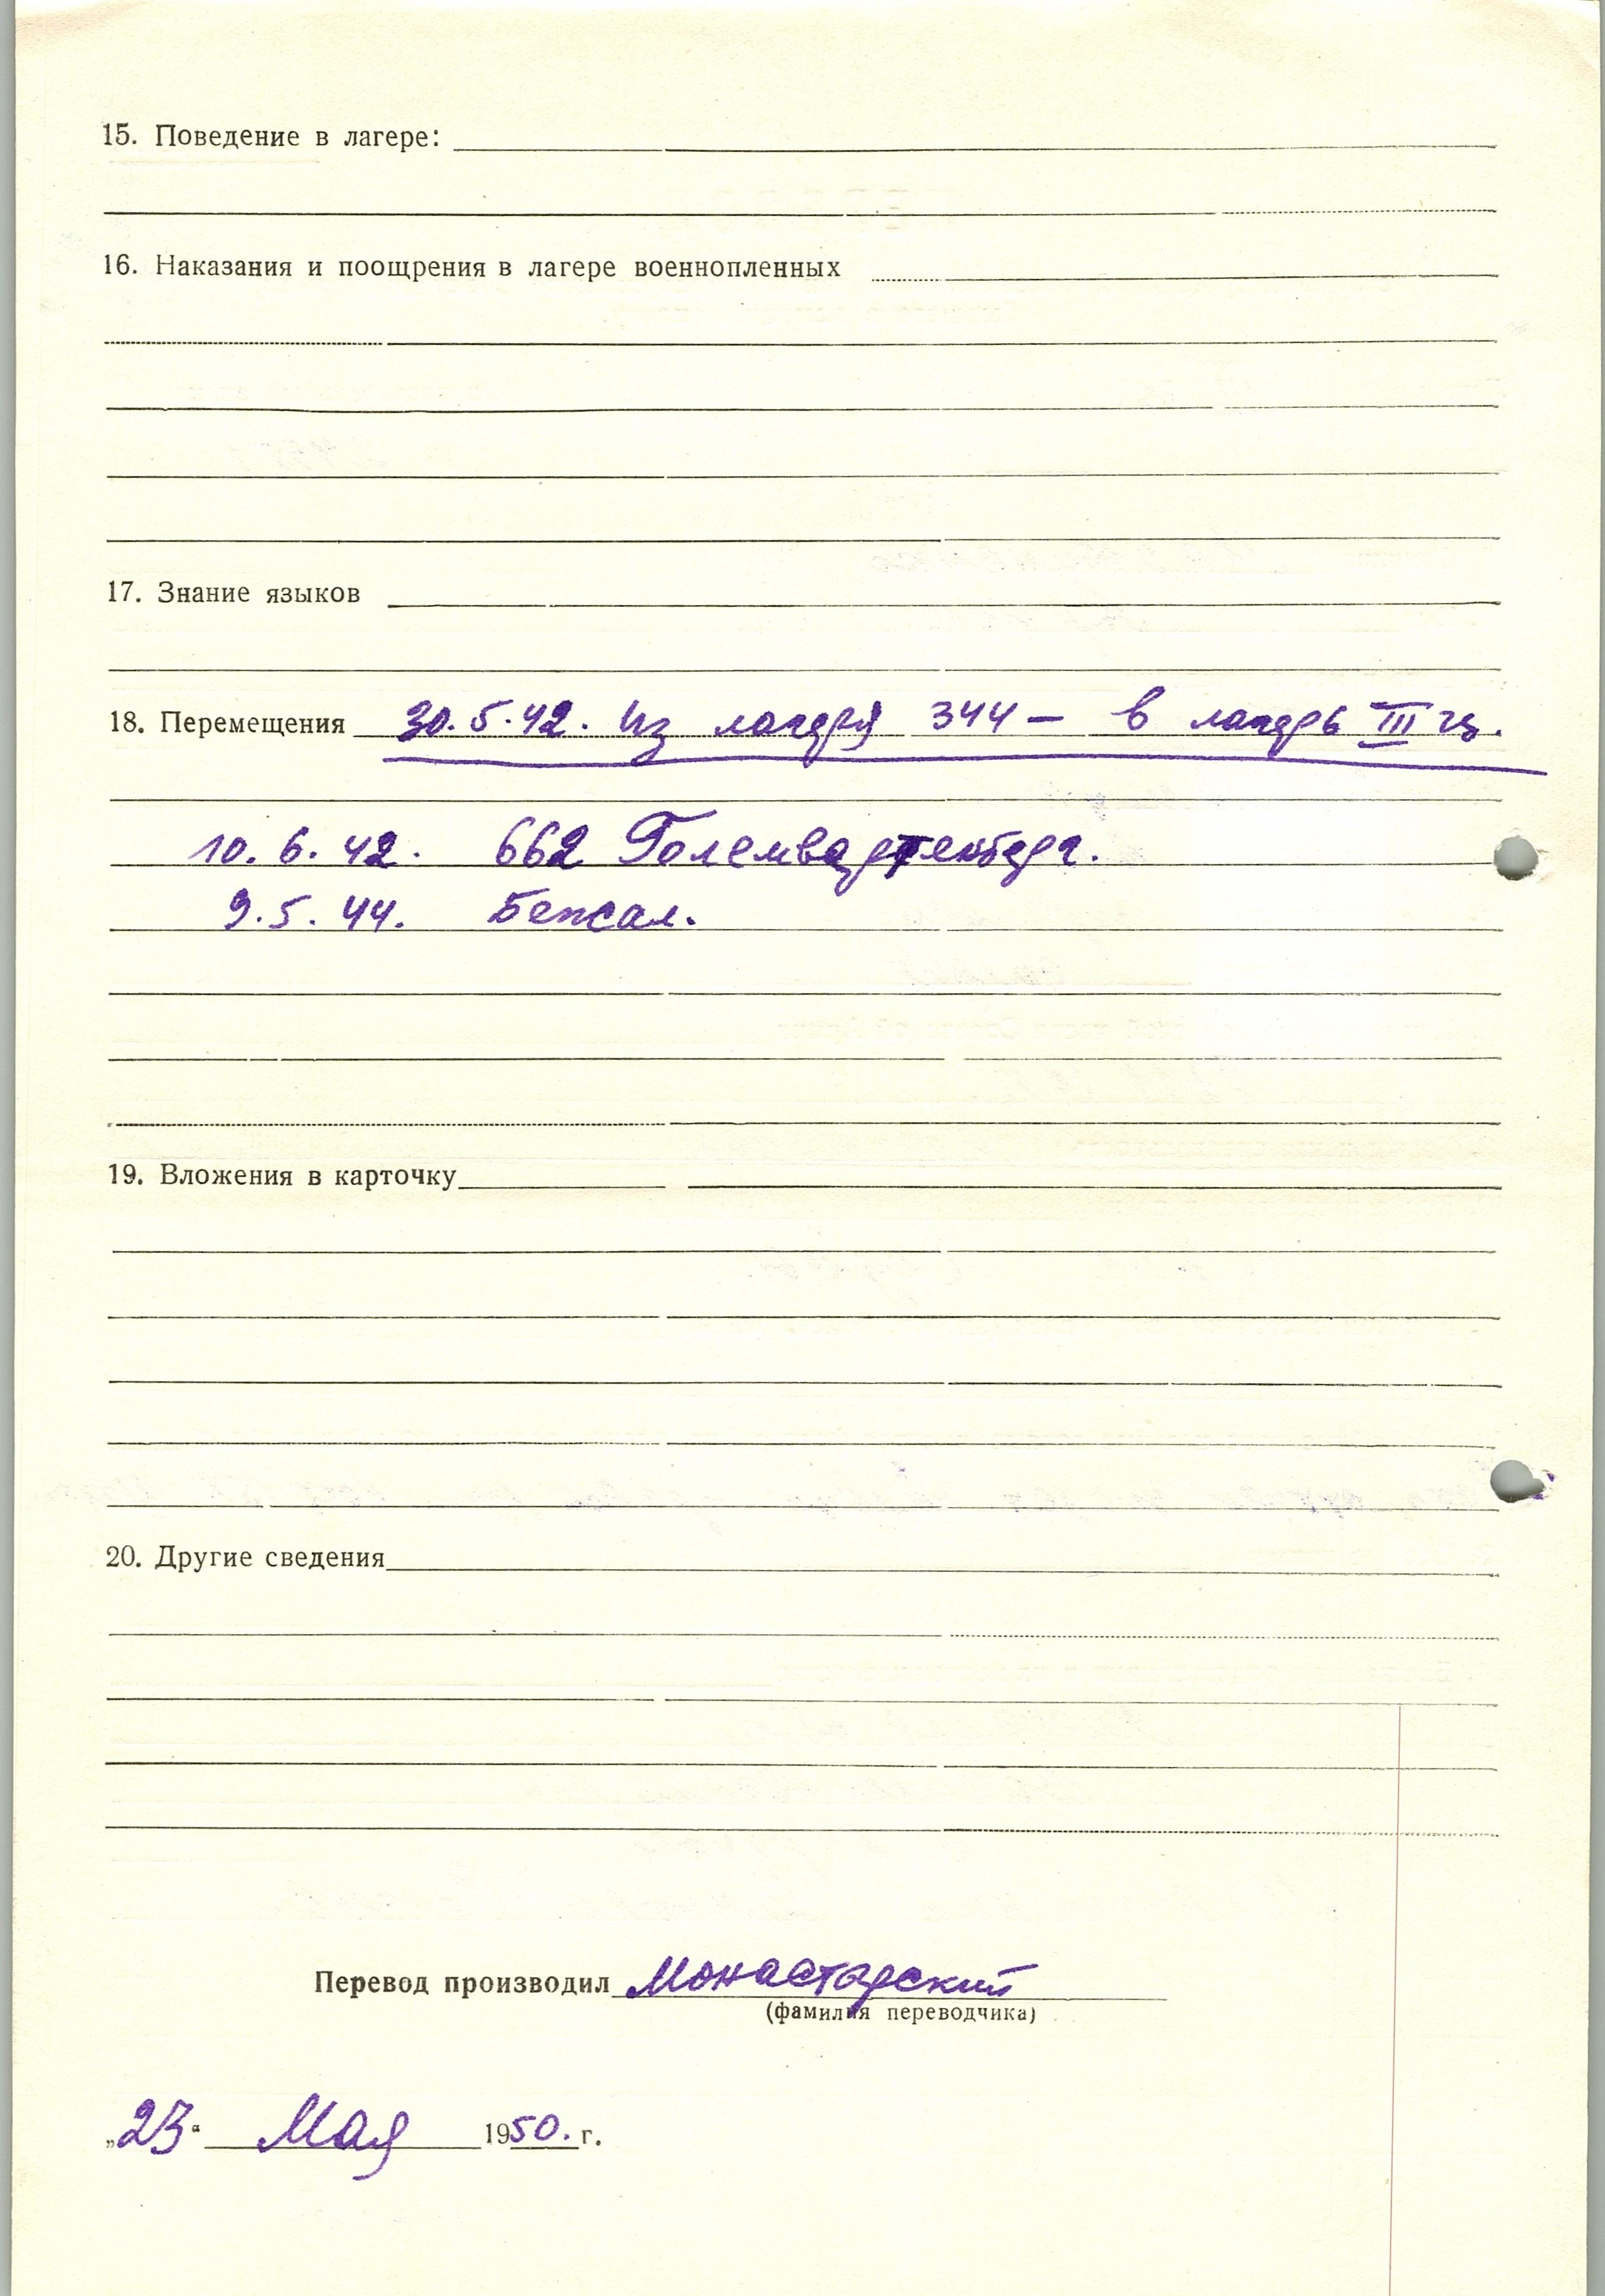 15. Поведение в лагере:
16. Наказания и поощрения в лагере военнопленных
17. Знание языков
18. Перемещения 30.5.42. Из лагеря 344 — в лагерь III
10. 6. 42. 662
9.5. 44. Бежал.
19. Вложения в карточку
20. Другие сведения
Перевод производил Монастарский
(фамилия переводчика)
„23“ Мая 1950. г.